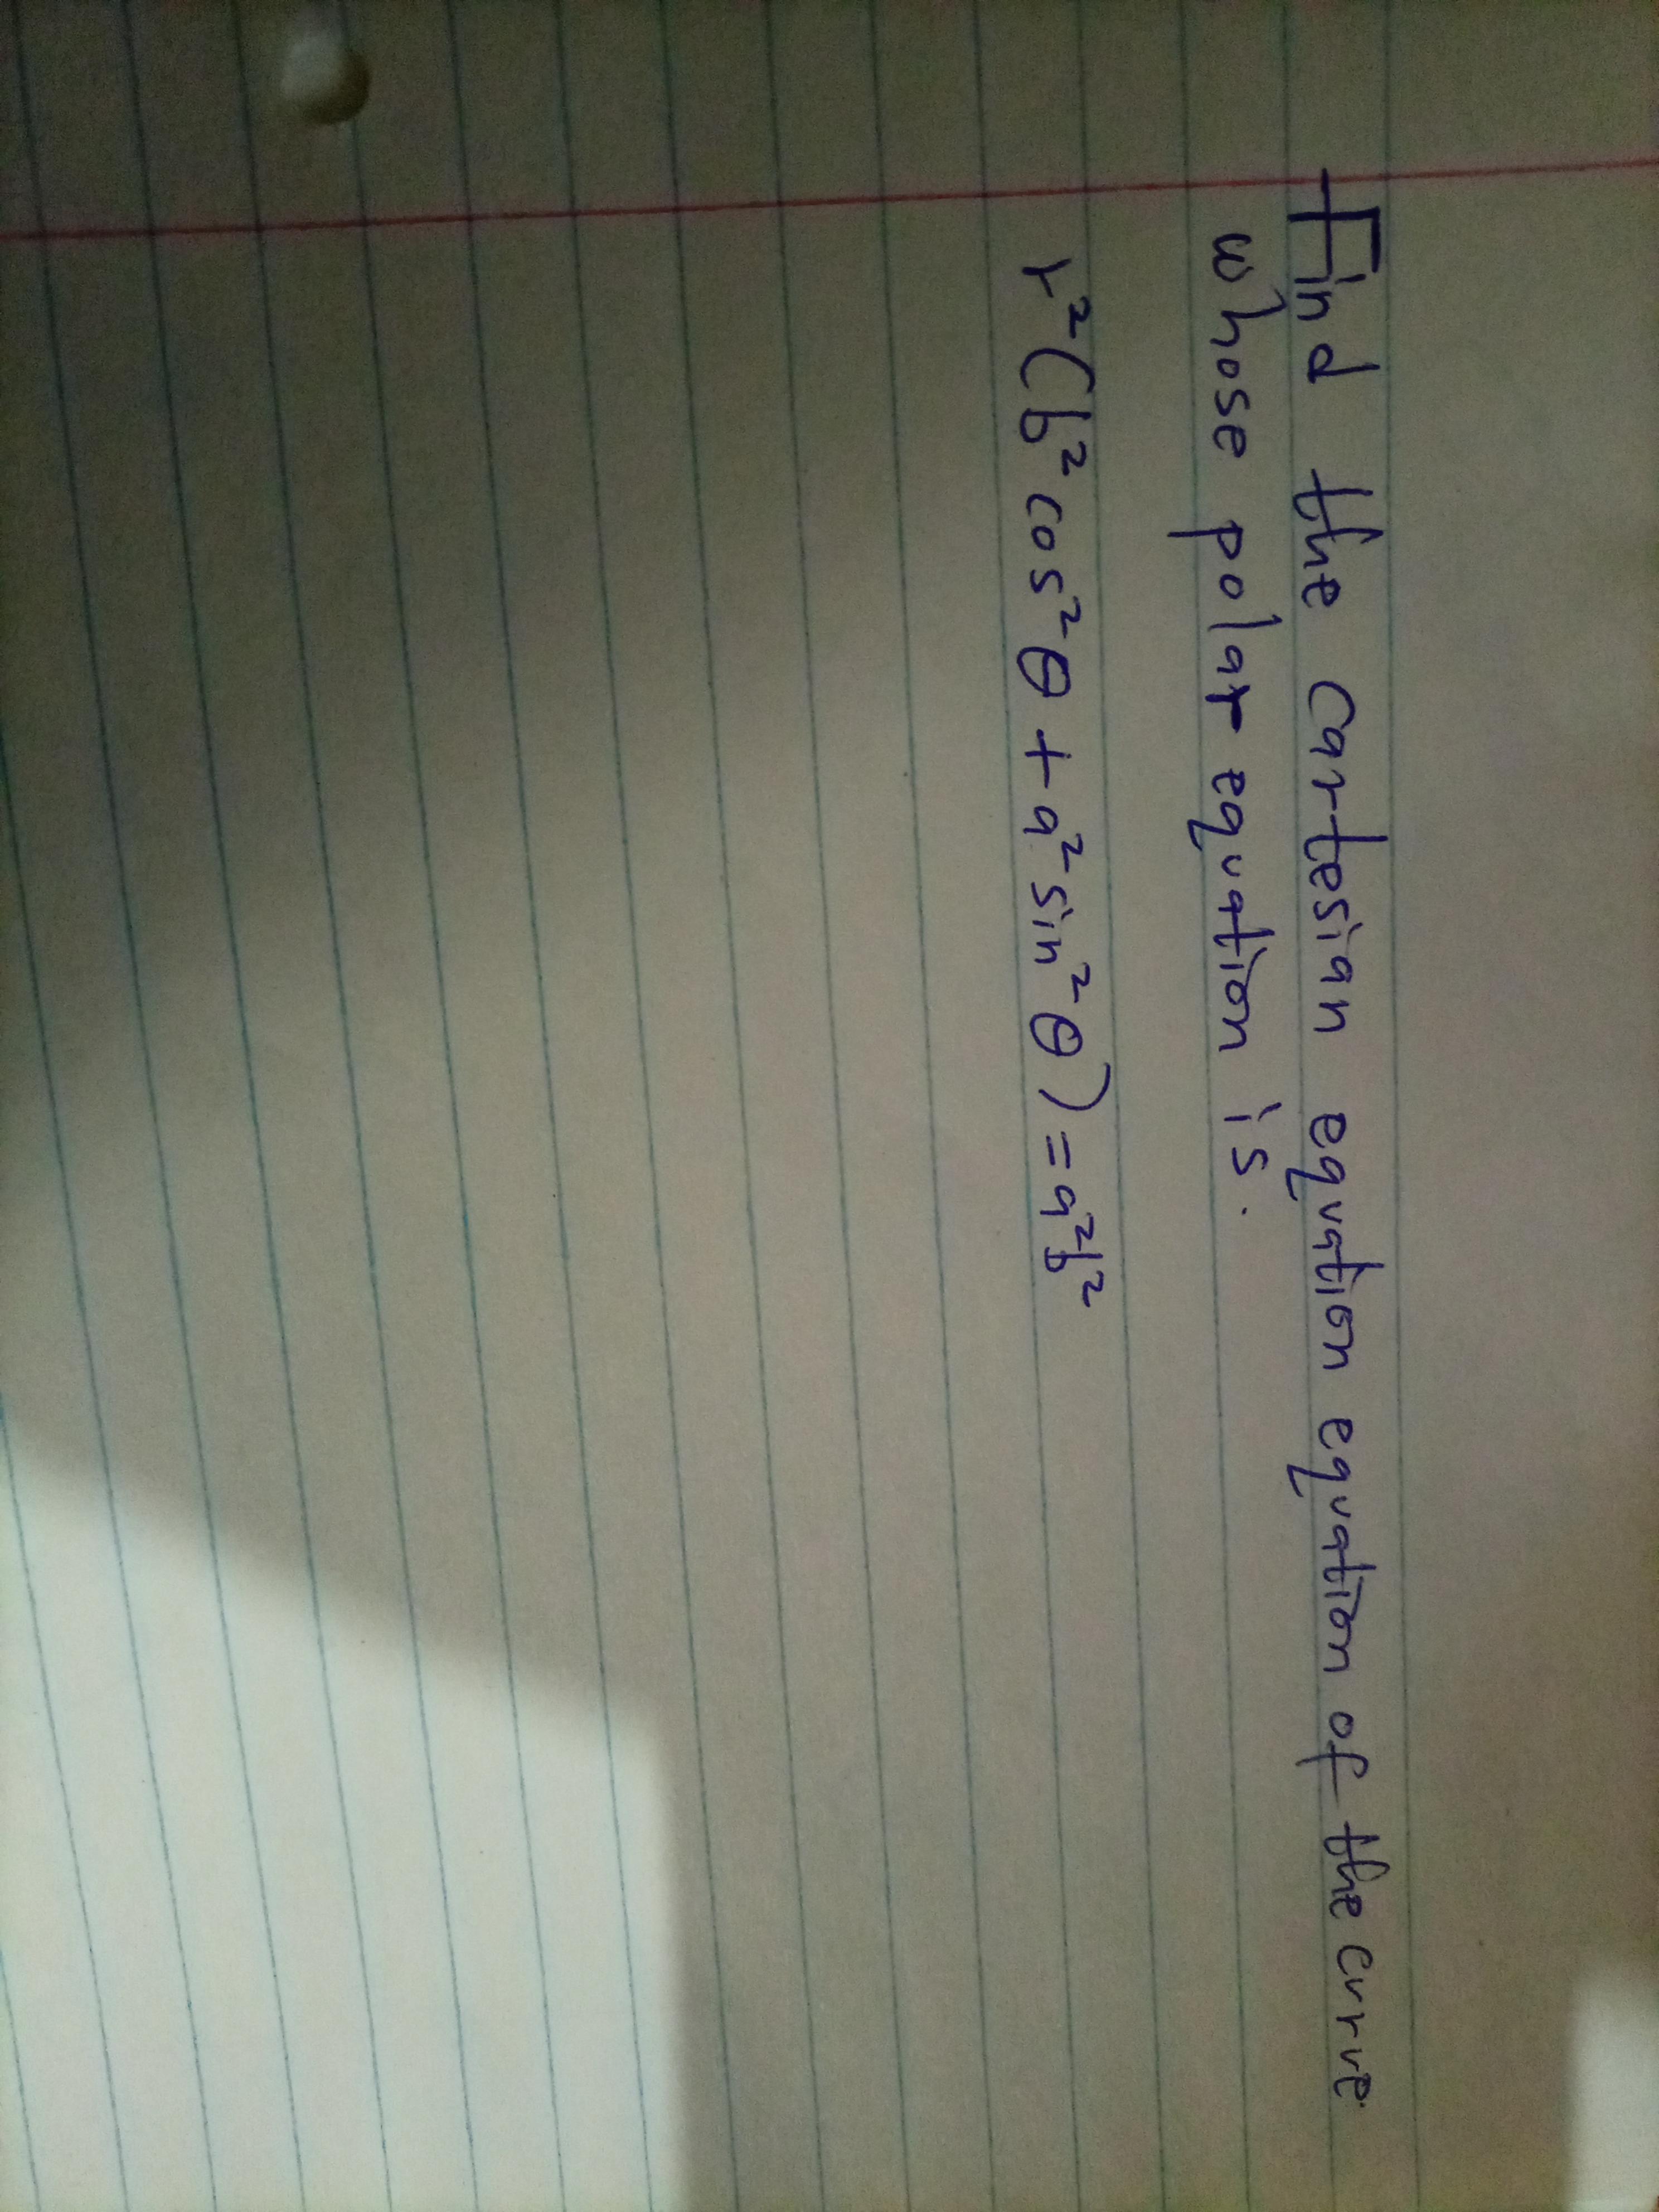 Find the cartesian equation equation of the curve.
whose polar equation is.
r²(b² cos²θ + a² sin²θ) = a²b²